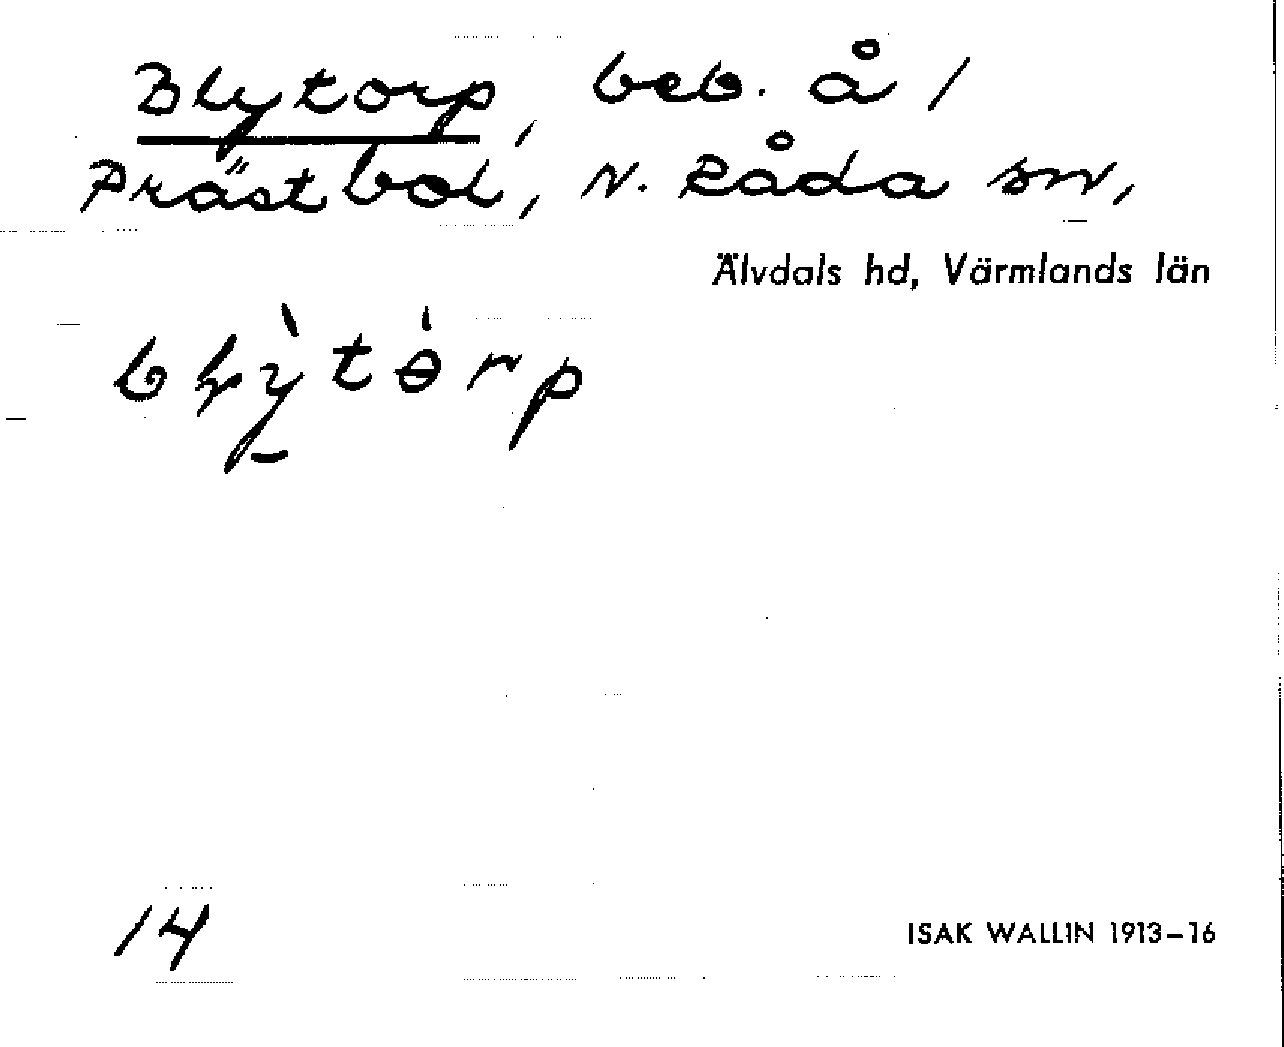 Blytorp, beb. å /
Prästbol, N. Råda sn,
Älvdals hd, Värmlands län
14
ISAK WALLIN 1913–16